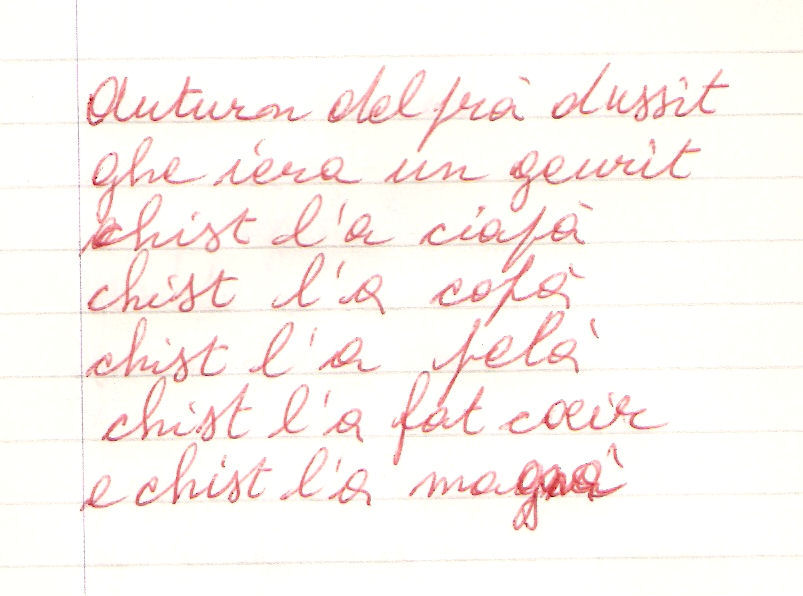 Auturon del prà dussit
ghe iera un geurit
chist l'a ciapà
chist l'a copà
chist l'a pelà
chist l'a fat coeir
e chist l'a magnà